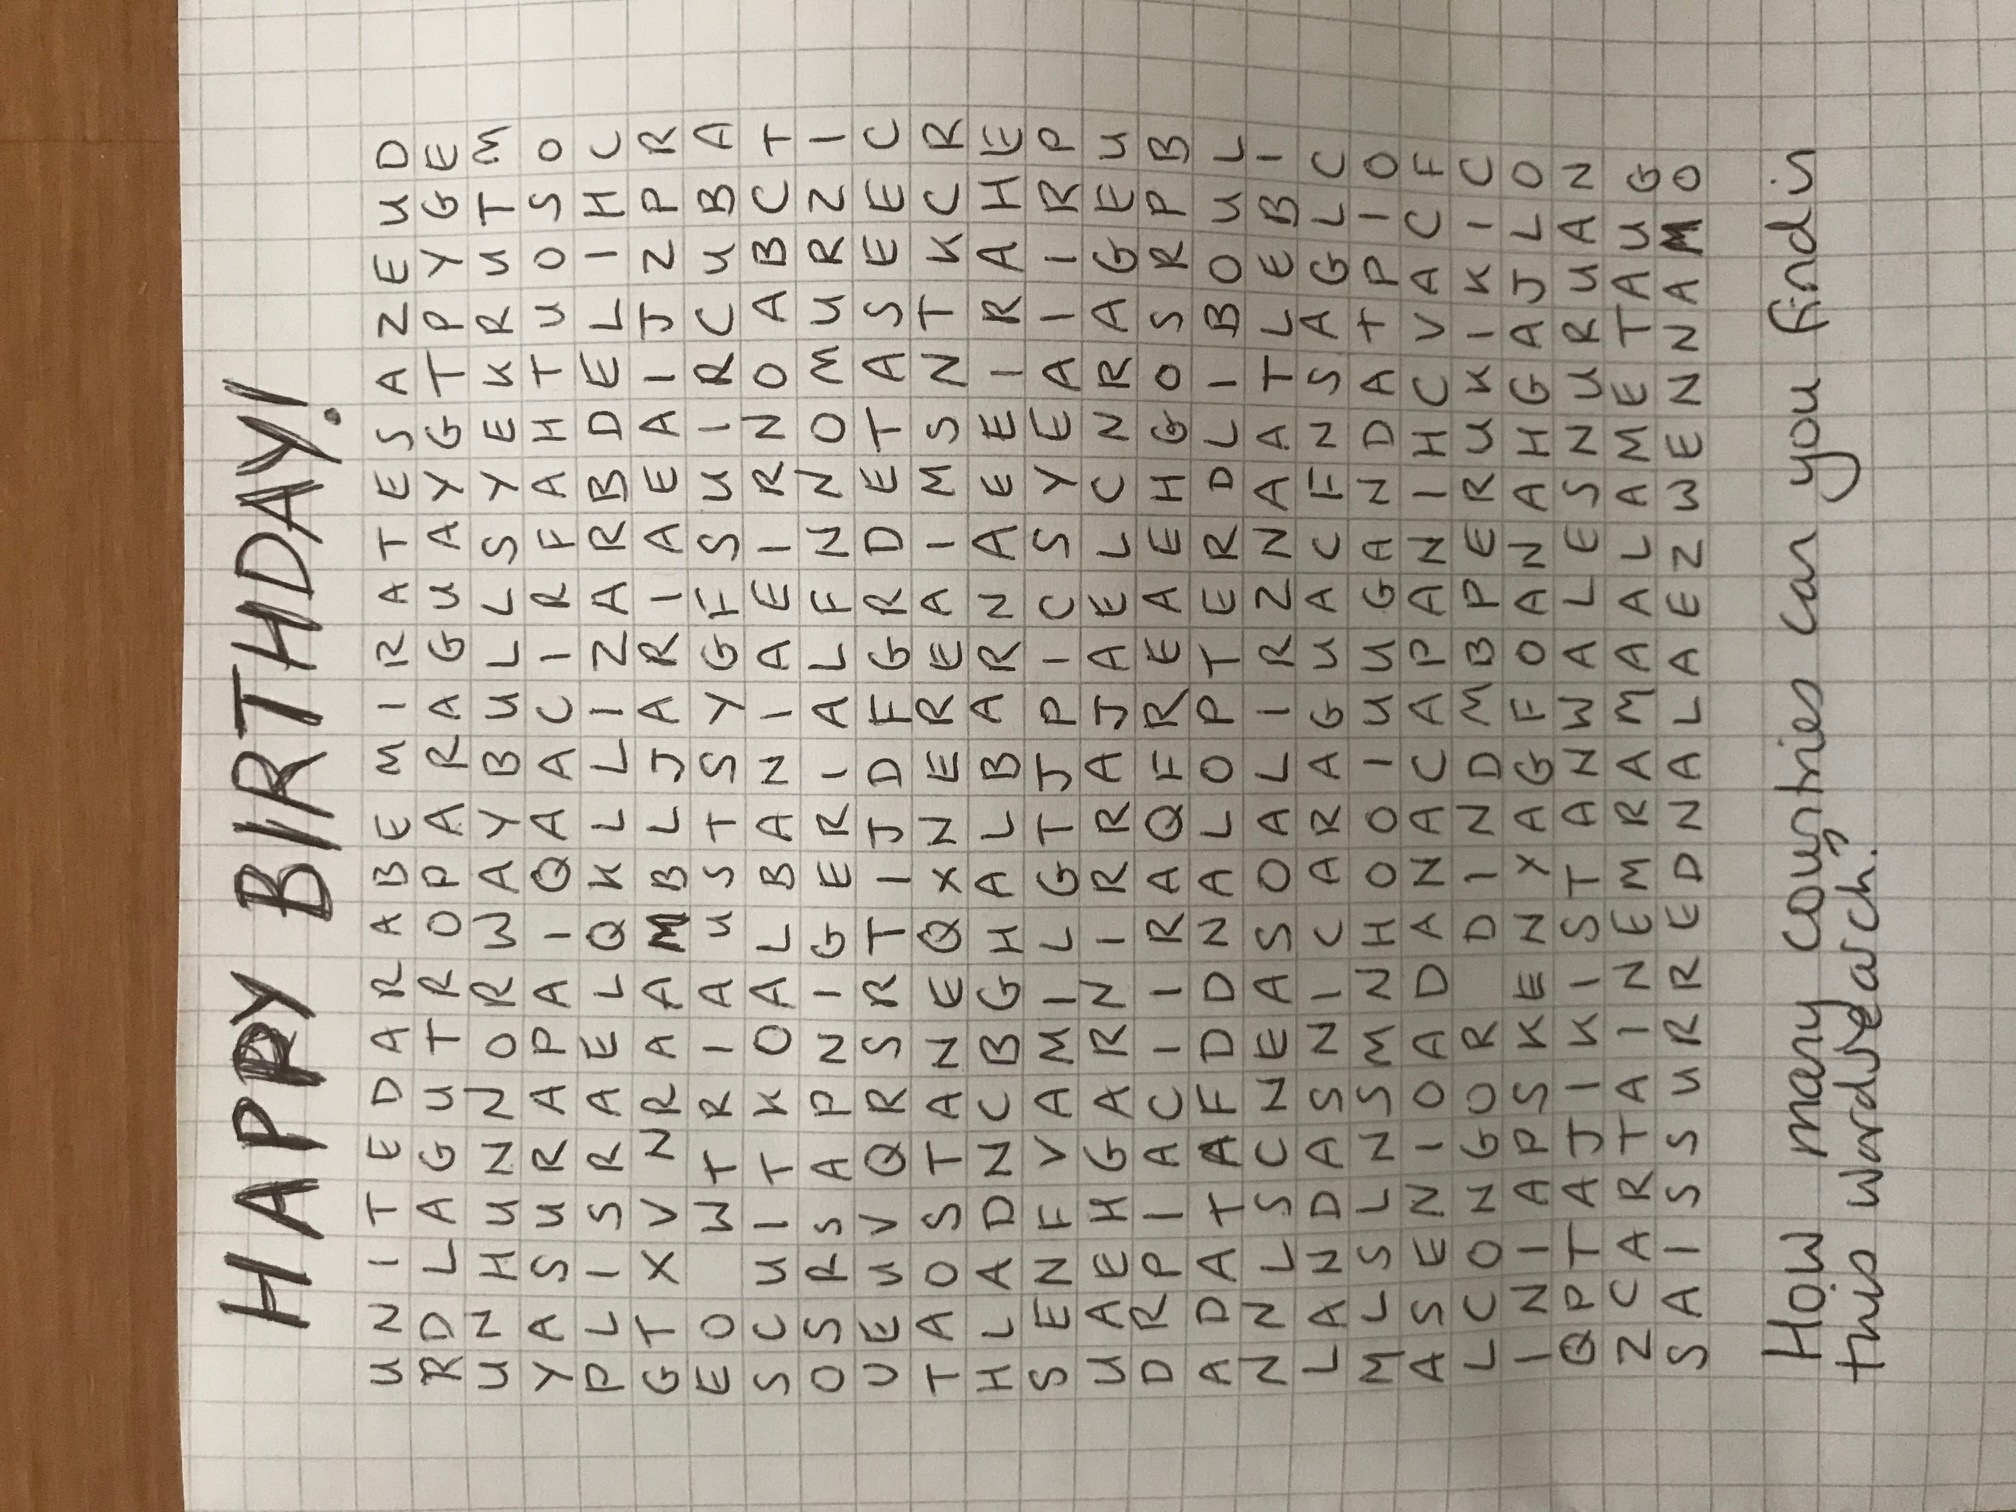 HAPPY BIRTHDAY!
U N I T E D A R A B E M I R A T E S A Z E U D
R D L A G U T R O P A R A G U A Y G T P Y G E
U N H U N N O R W A Y B U L L S Y E K R U T M
Y A S U R A P A I Q A A C I R F A H T U O S O
P L I S R A E L Q K L L I Z A R B D E L I H C
G T X V N R A A M B L J A R I A E A I J Z P R
E O W T R I A U S T S Y G F S U I R C U B A
S C U I T K O A L B A N I A E I R N O A B C T
O S R S A P N I G E R I A L F N N O M U R Z I
U E U V Q R S R T I J D F G R D E T A S E E C
T A O S T A N E Q X N E R E A I M S N T K C R
H L A D N C B G H A L B A R N A E E I R A H E
S E N F V A M I L G T J P I C S Y E A I I R P
U A E H G A R N I R R A J A E L C N R A G E U
D R P I A C I I R A Q F R E A E H G O S R P B
A D A T A F D D N A L O P T E R D L I B O U L
N N L S C N E A S O A L I R Z N A A T L E B I
L A N D A S N I C A R A G U A C F N S A G L C
M L S L N S M N H O O I U U G A N D A T P I O
A S E N I O A D A N A C A P A N I H C V A C F
L C O N G O R D I N D M B P E R U K I K I C
I N I A P S K E N Y A G F O A N A H G A J L O
Q P T A J I K I S T A N W A L E S N U R U A N
Z C A R T A I N E M R A M A A L A M E T A U G
S A I S S U R R E D N A L A E Z W E N N A M O
How many countries can you find in
this wordsearch?